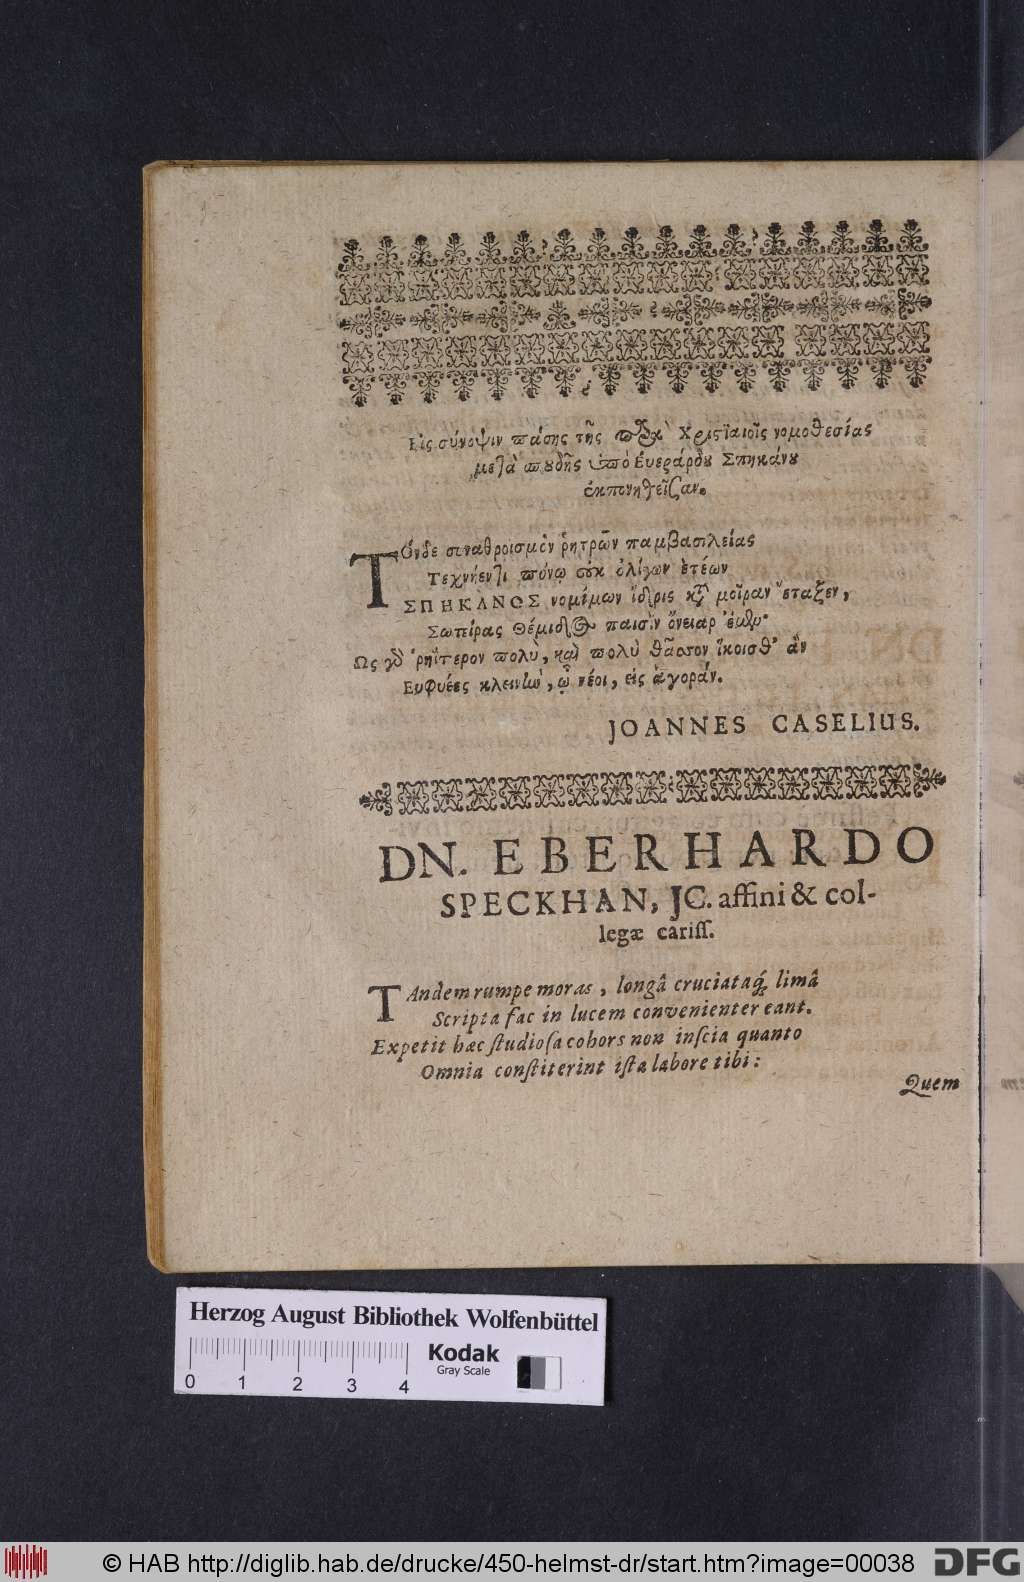 Εἰς σύνοψιν πάσης τῆς παρὰ Χριστιανοῖς νομοθεσίας
μετὰ σπουδῆς ὑπὸ Ἐυεράρδου Σπηκάνου
ἐκπονηθεῖσαν.
ΤΟνδε συναθροισμὸν ῥητρῶν παμβασιλείας
Τεχνήεντι πόνῳ οὐκ ὀλίγων ἐτέων
ΣΠΗΚΑΝΟΣ νομίμων ἴδρις κατὰ μοῖραν ἔταξεν,
Σωτείρας Θέμιδος παισὶν ὄνειαρ
Ως γὰρ ῥηίτερον πολὺ, καὶ πολὺ θᾶσσον ἵκοισθ' ἂν
Ευφυέες κλεινὴν, ὦ νέοι, εἰς ἀγοράν.
JOANNES CASELIUS.
DN. EBERHARDO
SPECKHAN, JC. affini & col-
legæ cariſſ.
TAndem rumpe moras, longâ cruciataq́; limâ
Scripta fac in lucem convenienter eant.
Expetit hæc ſtudioſa cohors non inſcia quanto
Omnia conſtiterint iſta labore tibi:
Quem
Herzog August Bibliothek Wolfenbüttel
Kodak
Gray Scale
0 1 2 3 4
© HAB http://diglib.hab.de/drucke/450-helmst-dr/start.htm?image=00038
DFG